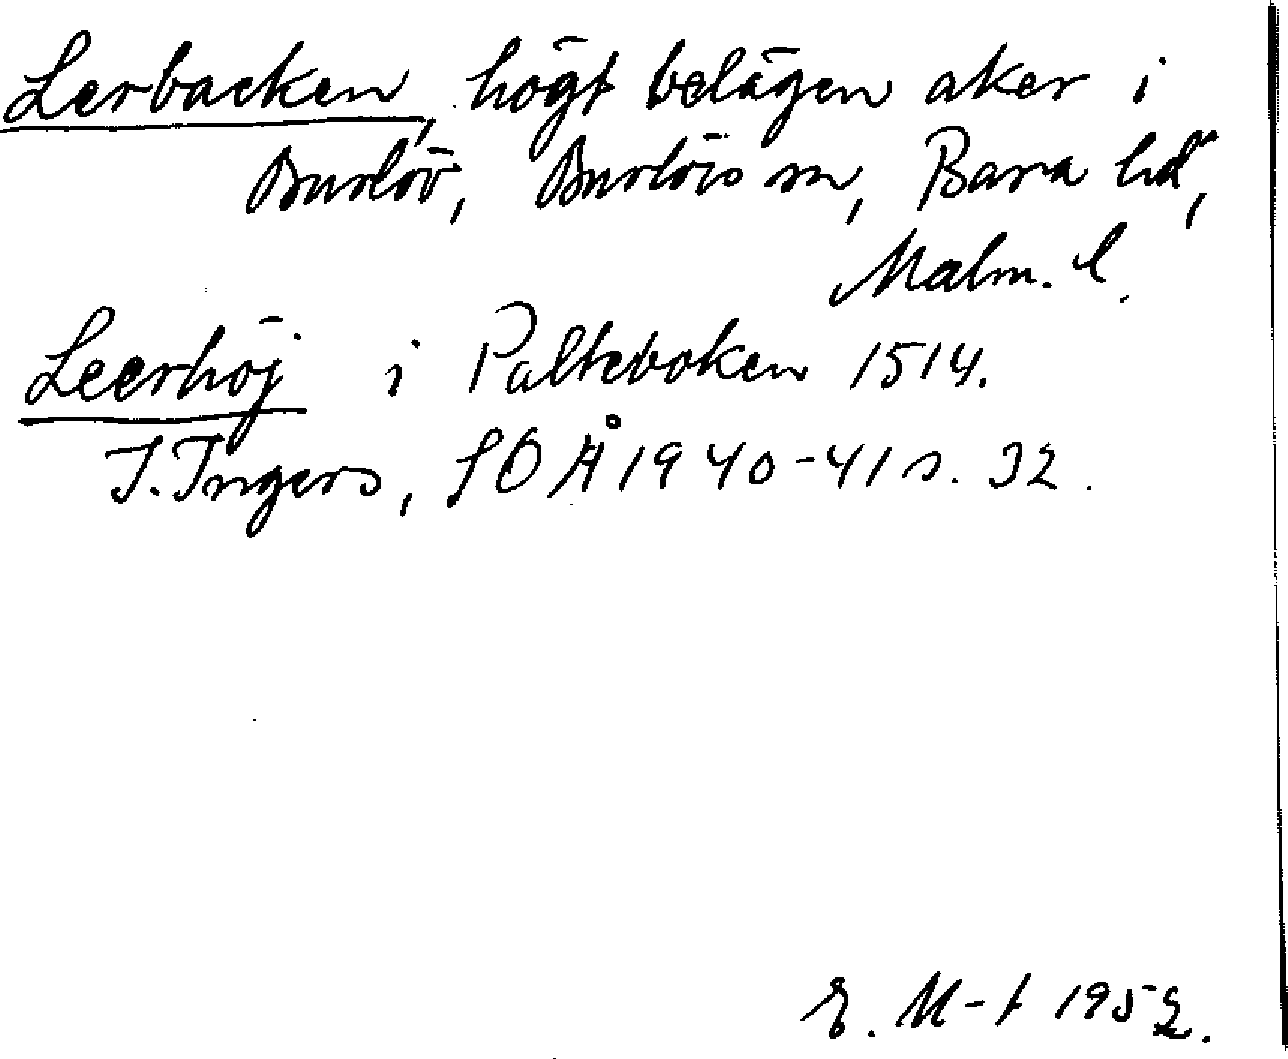 Lerbacken, högt belägen åker i
Burlöv, Burlövs sn, Bara hd,
Malm. l.
Leerhöj i Palteboken 1514.
I. Ingers, SOÅ 1940-41 s. 32.
E. M-t 1952.